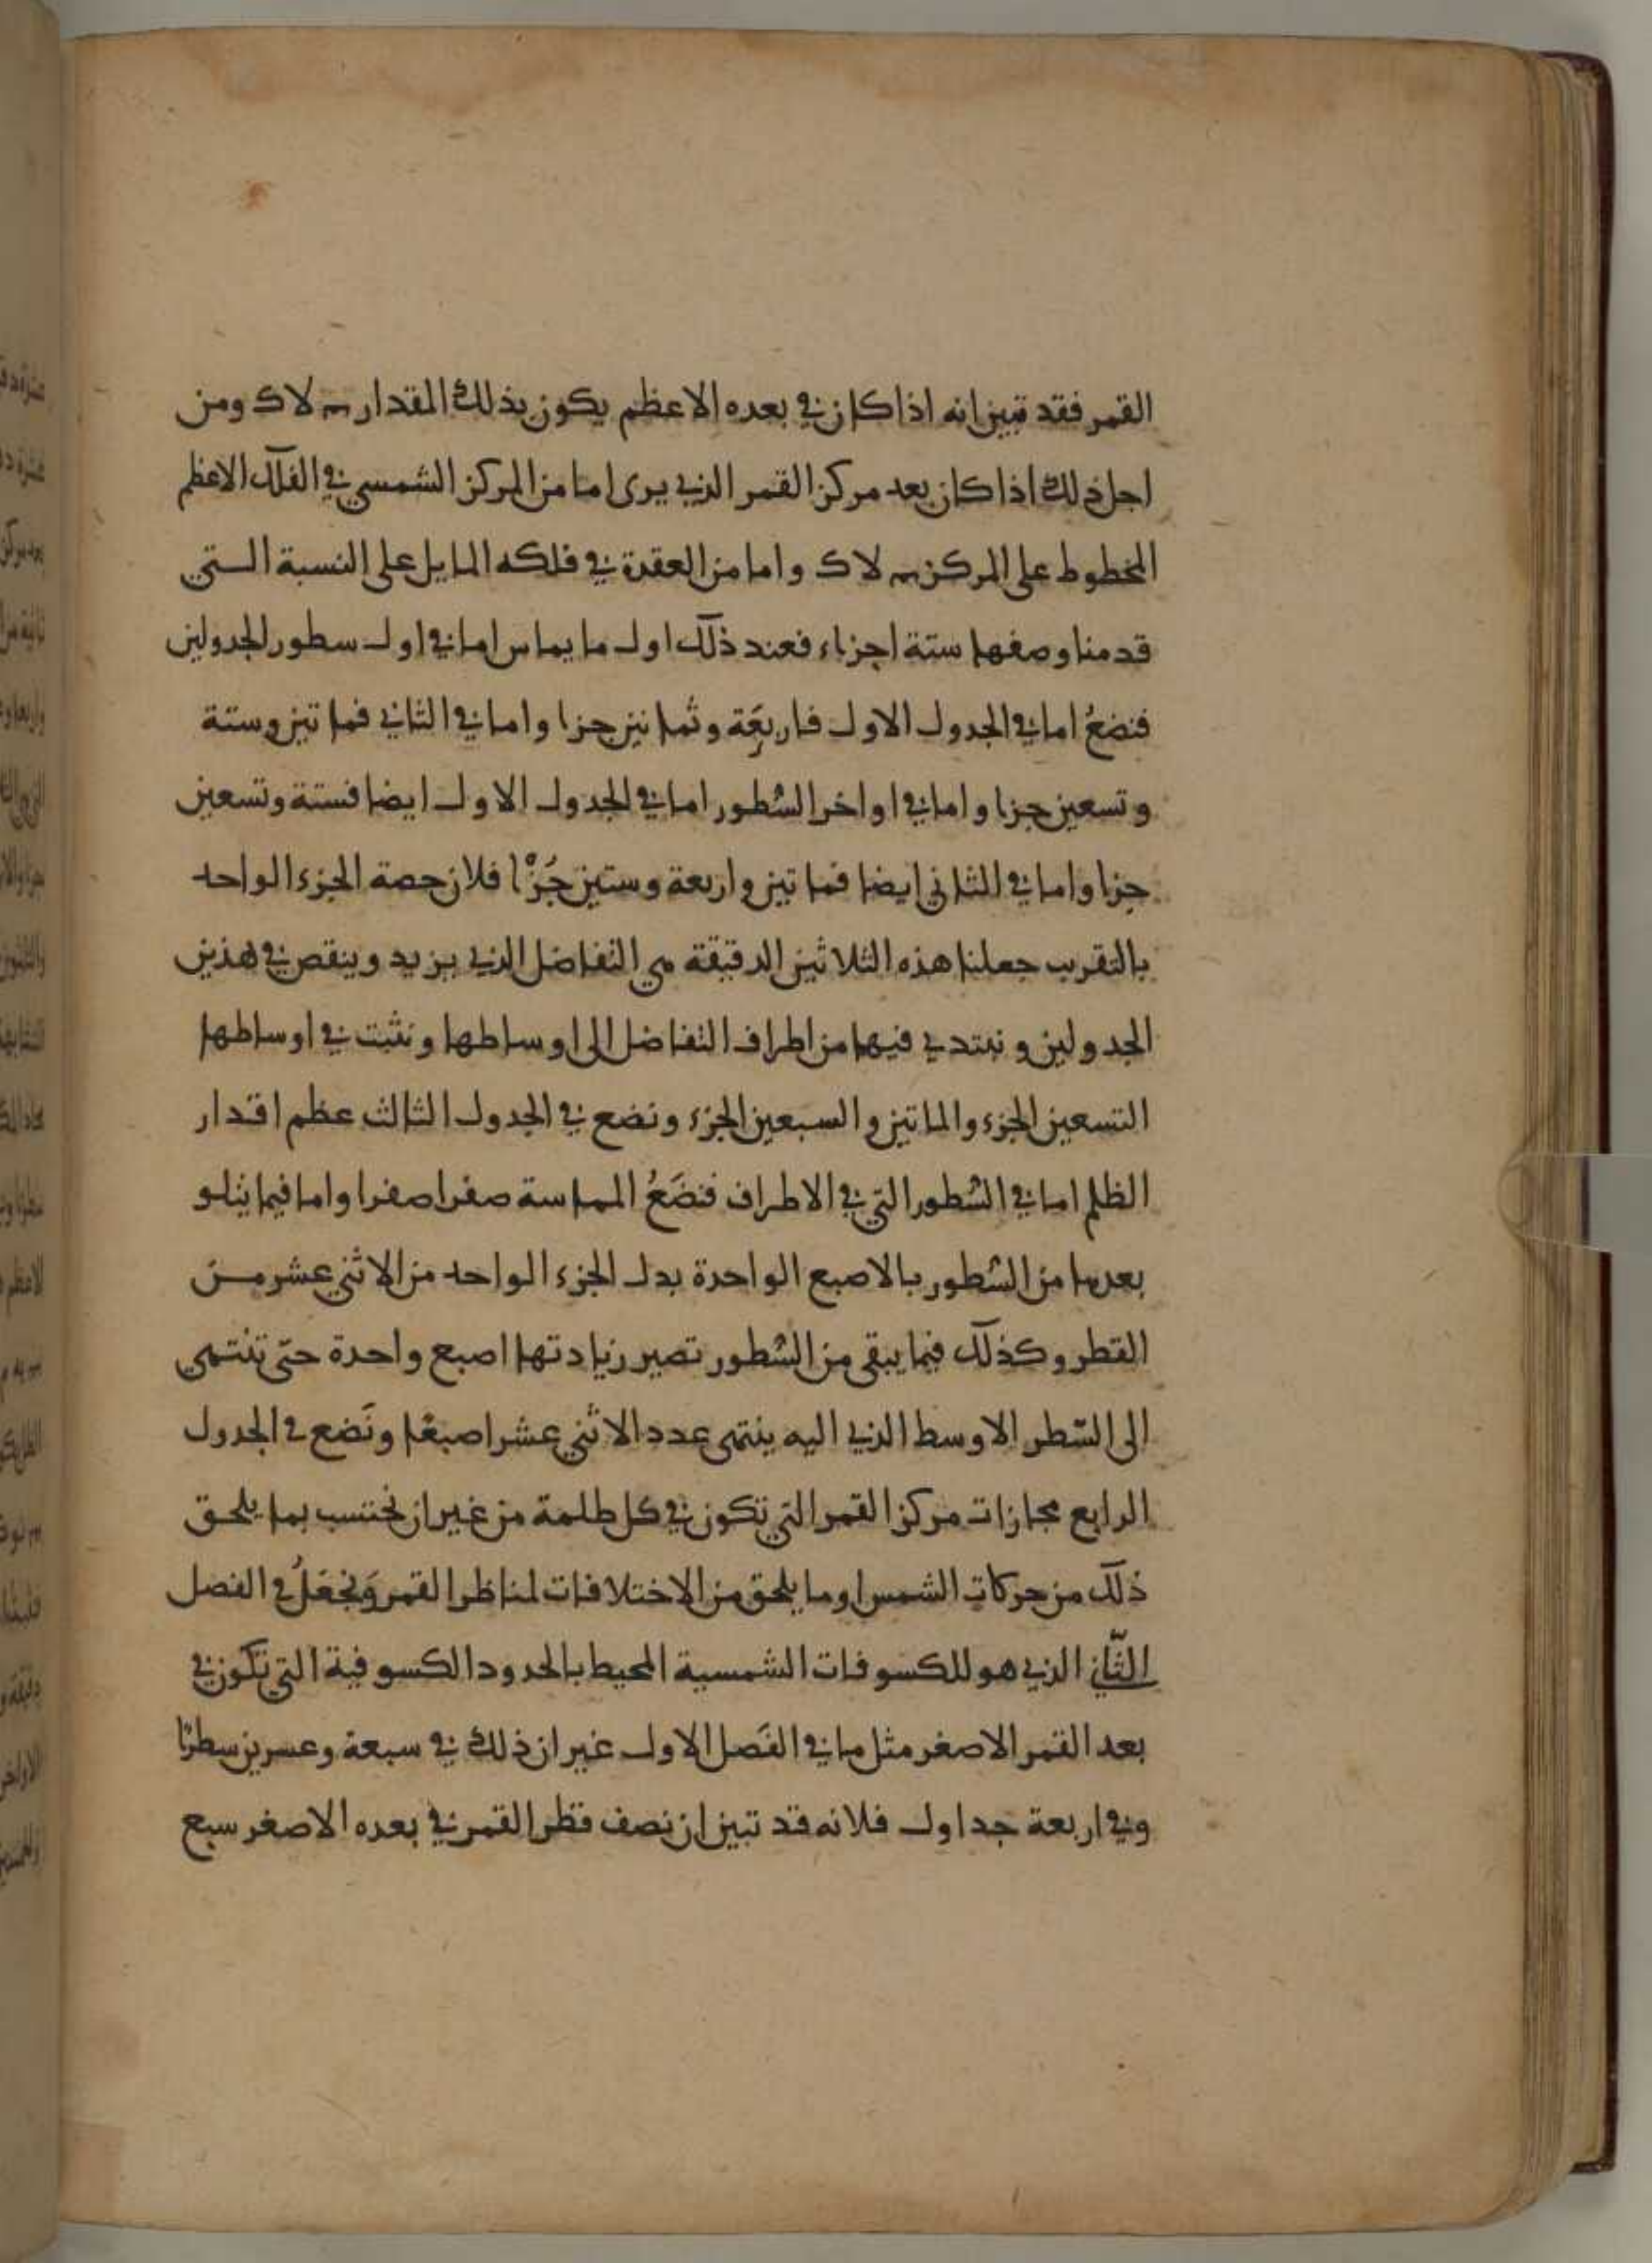 القمر فقد تبين انه اذا كان في بعده الاعظم يكون بذلك المقدار ܗ لا ك ومن
اجل ذلك اذا كان بعد مركز القمر الذي يرى اما من المركز الشمسي في الفلك الاعظم
المخطوط على المركز ܗ لا ك واما من العقدة في فلكه المايل على النسبة الستي
قدمنا وصفها ستة اجزاء فعند ذلك اول ما يماس اما في اول سطور الجدولين
فنضعُ اما في الجدول الاول فاربعَة وثمانين جزا واما في الثاني فماتين وستة
وتسعين جزا واما في اواخر السُطور اما في الجدول الاول ايضا فستة وتسعين
جزا واما في الثاني ايضا فماتين واربعة وستين جُزْا فلان حصة الجزء الواحد
بالتقريب جعلنا هذه الثلاثين الدقيقة هي التفاضل الذي يزيد وينقص في هذين
الجدولين ونبتدي فيهما من اطراف التفاضل الى اوساطها ونثبت في اوساطها
التسعين الجزء والماتين والسبعين الجزء ونضع في الجدول الثالث عظم اقدار
الظلم اما في السُطور التي في الاطراف فنضَعُ المماسة صفرا صفرا واما فيما يتلو
بعدها من السُطور بالاصبع الواحدة بدل الجزء الواحد من الاثني عشر من
القطر وكذلك فيما يبقى من السُطور تصير زيادتها اصبع واحدة حتّى تنتهي
الى السّطر الاوسط الذي اليه ينتهى عدد الاثني عشر اصبعًا ونَضع في الجدول
الرابع مجازات مركز القمر التي تكون في كل ظلمة من غير ان نحتسب بما يلحق
ذلك من حركات الشمس او ما يلحق من الاختلافات لمناظر القمر وَنجعَلُ في الفصل
الثّاني الذي هو للكسوفات الشمسية المحيط بالحدود الكسوفية التي تكون في
بعد القمر الاصغر مثل ما في الفَصل الاول غير ان ذلك في سبعة وعسرين سطرًا
وفي اربعة جداول فلانه قد تبين ان نصف قطر القمر في بعده الاصغر سبع